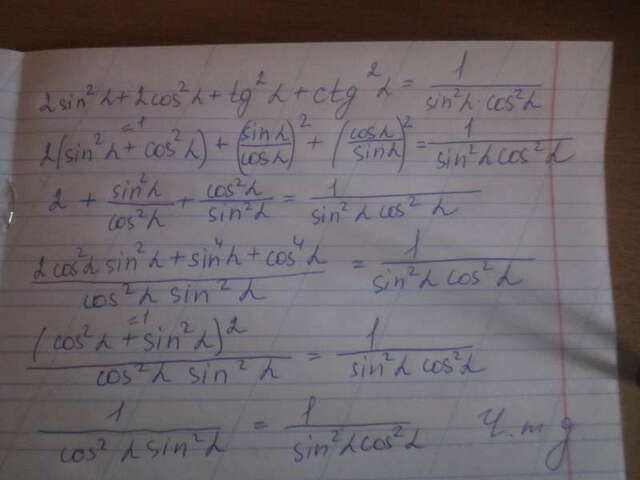 2sin²α + 2cos²α + tg²α + ctg²α = 1/(sin²α · cos²α)
2(sin²α + cos²α) =1 + (sinα/cosα)² + (cosα/sinα)² = 1/(sin²α cos²α)
2 + sin²α/cos²α + cos²α/sin²α = 1/(sin²α cos²α)
(2cos²α sin²α + sin⁴α + cos⁴α)/(cos²α sin²α) = 1/(sin²α cos²α)
(cos²α + sin²α)² =1/(cos²α sin²α) = 1/(sin²α cos²α)
1/(cos²α sin²α) = 1/(sin²α cos²α) Ч.т д